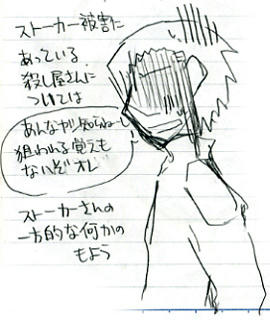 ストーカー被害に
あっている
殺し屋さんに
ついては
あんなガ知らねーし
狙われる覚えも
ないぞオレ
ストーカーさんの
一方的な何かの
もよう